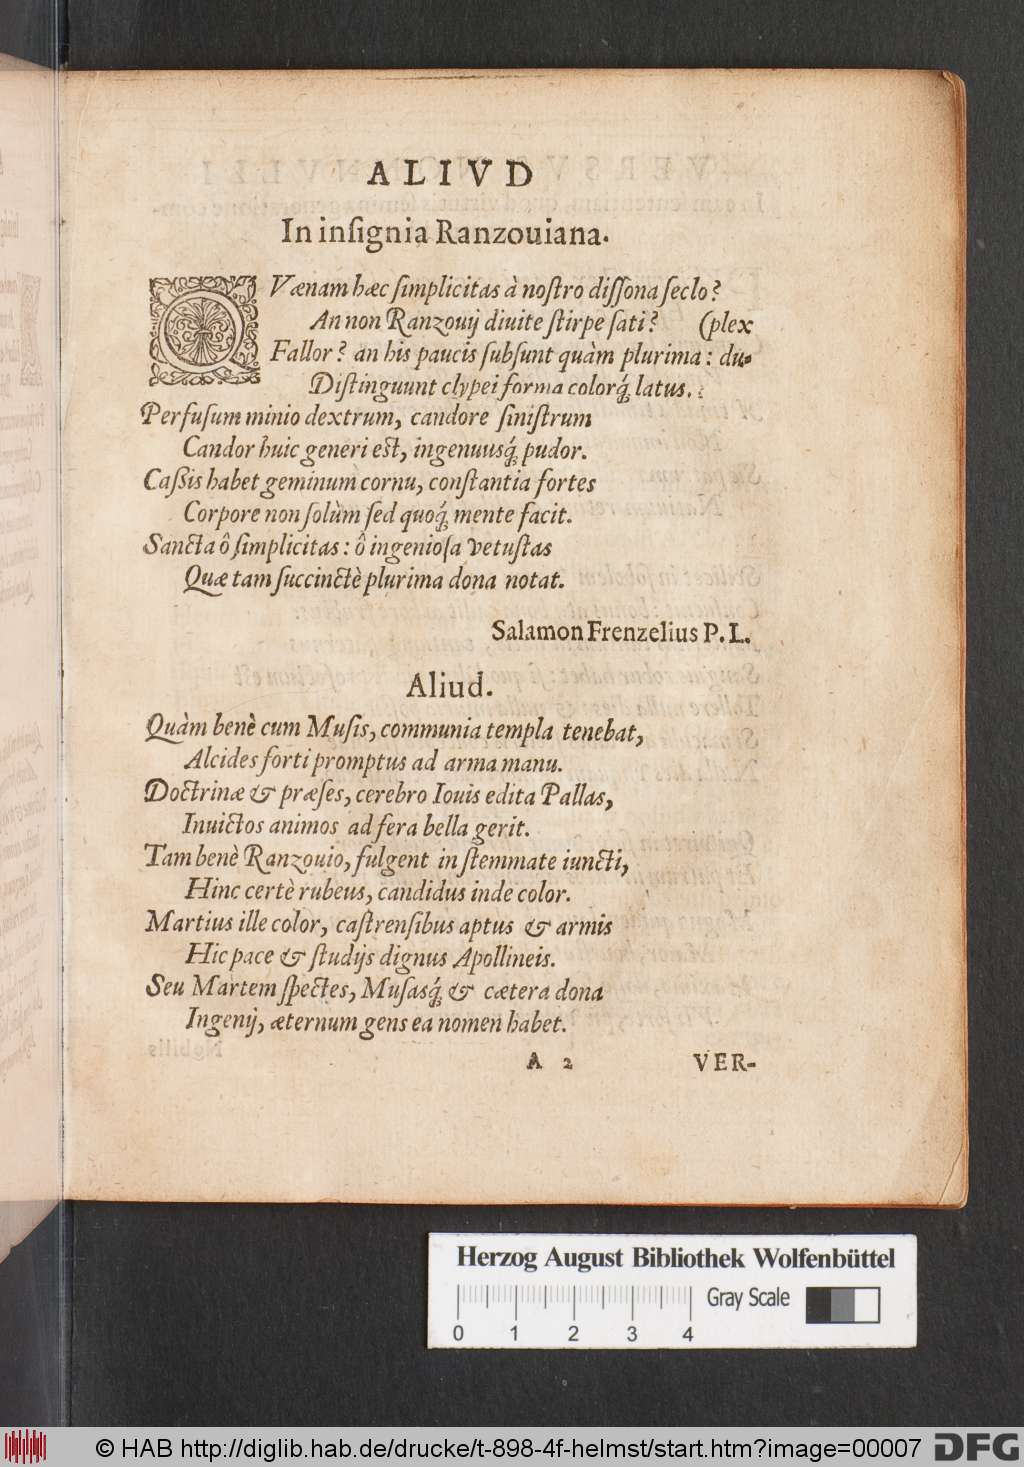 ALIVD
In inſignia Ranzouiana.
QVænam hæc ſimplicitas à noſtro diſſona ſeclo?
An non Ranzouij diuite ſtirpe ſati? (plex
Fallor? an his paucis ſubſunt quàm plurima: du-
Diſtinguunt clypei forma colorq́; latus.
Perfuſum minio dextrum, candore ſiniſtrum
Candor huic generi eſt, ingenuusq́; pudor.
Caſsis habet geminum cornu, conſtantia fortes
Corpore non ſolùm ſed quoq́; mente facit.
Sancta ô ſimplicitas: ô ingenioſa vetuſtas
Quæ tam ſuccinctè plurima dona notat.
Salamon Frenzelius P. L.
Aliud.
Quàm benè cum Muſis, communia templa tenebat,
Alcides forti promptus ad arma manu.
Doctrinæ & præſes, cerebro Iouis edita Pallas,
Inuictos animos ad fera bella gerit.
Tam benè Ranzouio, fulgent in ſtemmate iuncti,
Hinc certè rubeus, candidus inde color.
Martius ille color, caſtrenſibus aptus & armis
Hic pace & ſtudijs dignus Apollineis.
Seu Martem ſpectes, Muſasq́; & cætera dona
Ingenij, æternum gens ea nomen habet.
A 2 VER-
Herzog August Bibliothek Wolfenbüttel
Gray Scale
0 1 2 3 4
© HAB http://diglib.hab.de/drucke/t-898-4f-helmst/start.htm?image=00007 DFG